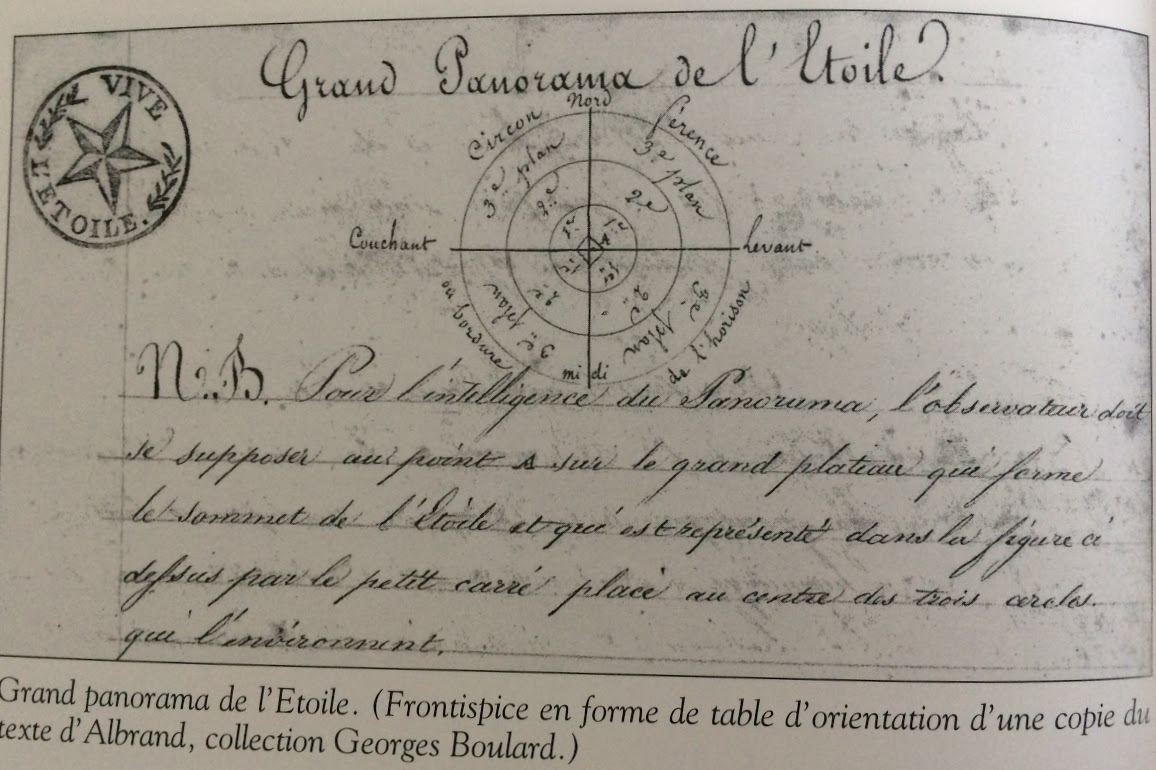 Grand Panorama de l'Etoile.
VIVE
L'ETOILE.
Nord
Circon férence
3e plan 3e plan
2e 2e
1er 1er
A
Couchant Levant
1er 1er
2e 2e
3e plan 3e plan
ou bordure de l'horison
midi
N.B. Pour l'intelligence du Panorama, l'observateur doit
se supposer au point A sur le grand plateau qui forme
le sommet de l'Etoile et qui est représenté dans la figure ci
dessus par le petit carré placé au centre des trois cercles
qui l'environnent.
Grand panorama de l'Etoile. (Frontispice en forme de table d'orientation d'une copie du
texte d'Albrand, collection Georges Boulard.)